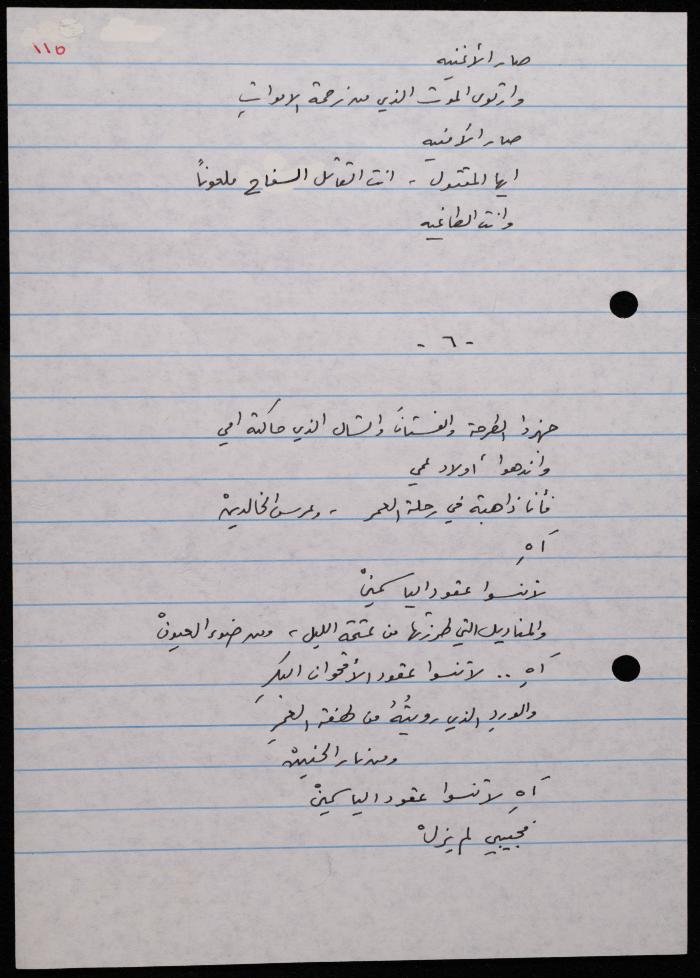 ١١٥
صار الأغنيه
وارتوى الموت الذي من زحمة الاموات
صار الأمنيه
ايها المقتول ، انت القاتل السفاح ملعوناً
وانت الطاغيه
- ٦ -
حضروا الطرحة والفستانَ والشال الذي حاكته امي
واندهوا أولاد عمي
فأنا ذاهبة في رحلة العمر ، وعرس الخالدينْ
آهِ
لا تنسوا عقود الياسمينْ
والمناديل التي طرزتها من عتمة الليل ، ومن ضوء العيونْ
آهِ .. لا تنسوا عقود الأقحوان البكرِ
والورد الذي رويتُهُ من لهفة العمْرِ
ومن نار الحنينْ
آهِ لا تنسوا عقود الياسمينْ
فحبيبي لم يزلْ